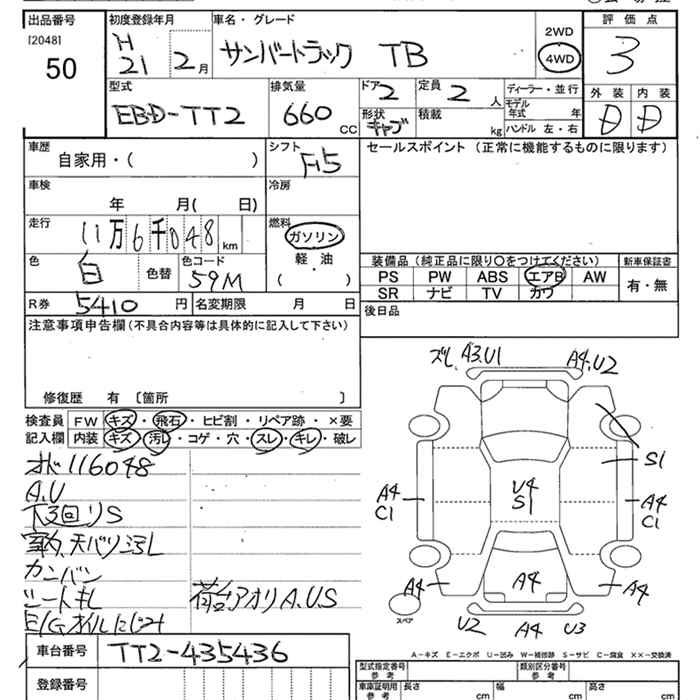 出品番号
[2048]
50
初度登録年月
H
21 2月
車名・グレード
サンバートラック TB
2WD
4WD
評価点
3
型式
EBD-TT2
排気量
660 CC
ドア
2
形状
キャブ
定員
2人
積載
kg
ディーラー・並行
モデル年式 年
ハンドル 左・右
外装 内装
D D
車歴
自家用・( )
シフト
F5
セールスポイント (正常に機能するものに限ります)
車検
年 月( 日)
冷房
走行
11万6千048km
燃料
ガソリン
軽・油
( )
色
白
色替
色コード
59M
装備品(純正品に限り○をつけてください)
新車保証書
PS PW ABS エアB AW
有・無
SR ナビ TV カワ
R券 5410円
名変期限 月 日
後日品
注意事項申告欄(不具合内容等は具体的に記入して下さい)
修復歴 有 〔箇所 〕
検査員記入欄
FW キズ・飛石・ヒビ割・リペア跡・×要
内装 キズ・汚レ・コゲ・穴・スレ・キレ・破レ
オド116048
A.U
下3回りS
カンバン
シートキレ
E/Gオイルにじみ
荷台アオリA.U.S
ズレ A3.U1
A4.U2
S1
A4
C1
U4
S1
A4
C1
A4
A4
A4
スペア
U2 A4 U3
A-キズ E-エクボ U-凹み W-補修跡 S-サビ C-腐食 ××-交換済
車台番号
TT2-435436
登録番号
型式指定番号
参考
類別区分番号
参考
車庫証明用
参考
長さ
cm
幅
cm
高さ
cm